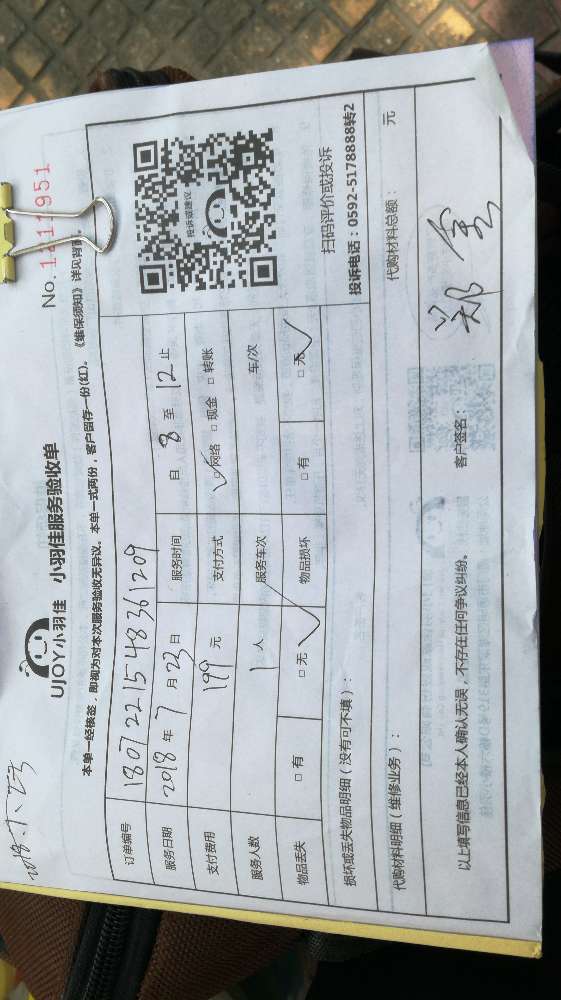 No. 1211951
UJOY小羽佳 小羽佳服务验收单
本单一经核签，即视为对本次服务验收无异议。本单一式两份，客户留存一份(红)。《维保须知》详见背面。
订单编号 1807221548361209
服务日期 2018年7月23日 服务时间 自8至12止
支付费用 199元 支付方式 ☑网络 □现金 □转账
服务人数 1人 服务车次 车/次
物品丢失 □有 ☑无 物品损坏 □有 ☑无
投诉或建议
扫码评价或投诉
投诉电话：0592-5178888转2
损坏或丢失物品明细（没有可不填）：
代购材料明细（维修业务）： 代购材料总额： 元
以上填写信息已经本人确认无误，不存在任何争议纠纷。 客户签名：郑金